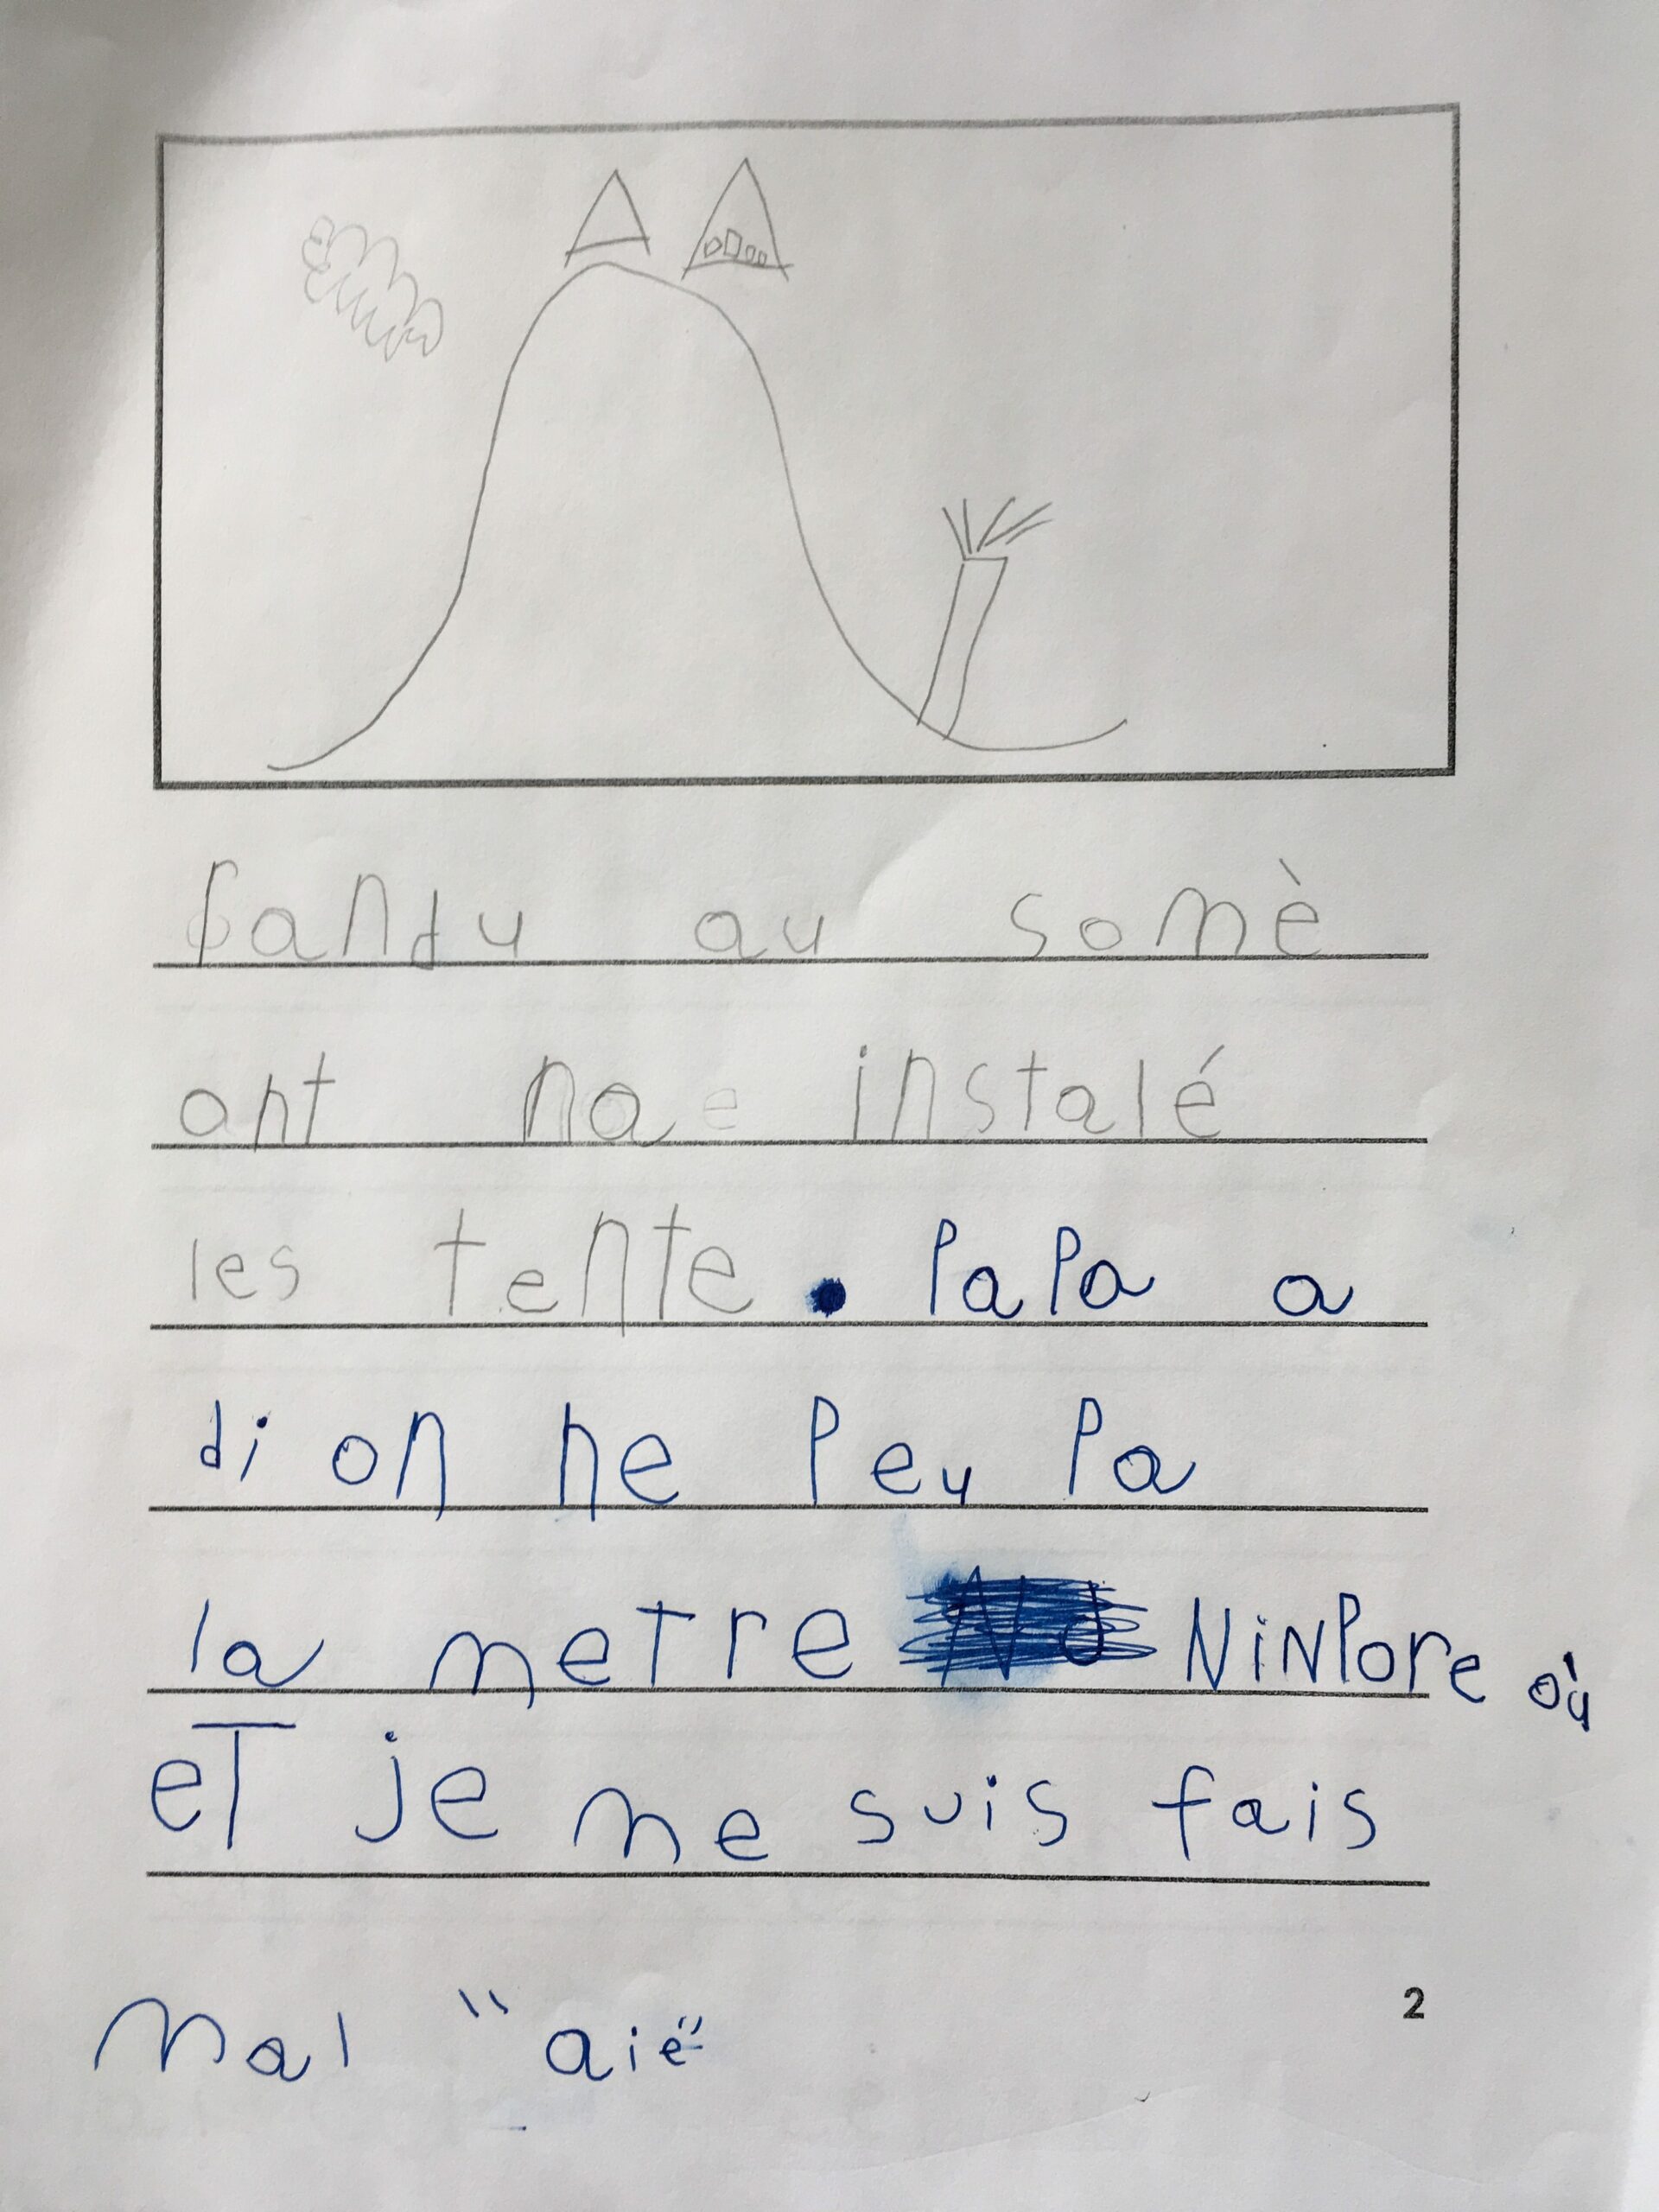 randu au somè
ont na instalé
les tente. Papa a
di on ne peu Pa
la metre NiNPore où
eT je me suis fais
mal "aie"
2